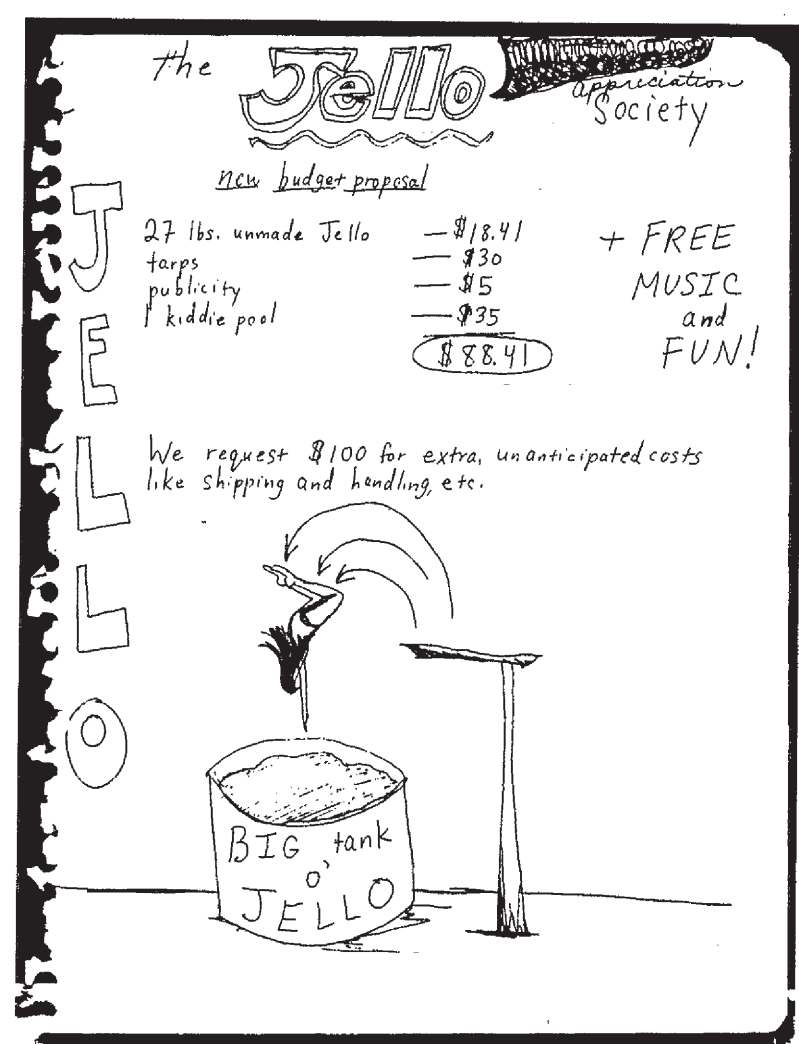 the Jello
appreciation
Society
new budget proposal
27 lbs. unmade Jello — $18.41
tarps — $30
publicity — $5
1 kiddie pool — $35
$88.41
+ FREE
MUSIC
and
FUN!
We request $100 for extra, unanticipated costs
like shipping and handling, etc.
JELLO
BIG tank
o'
JELLO